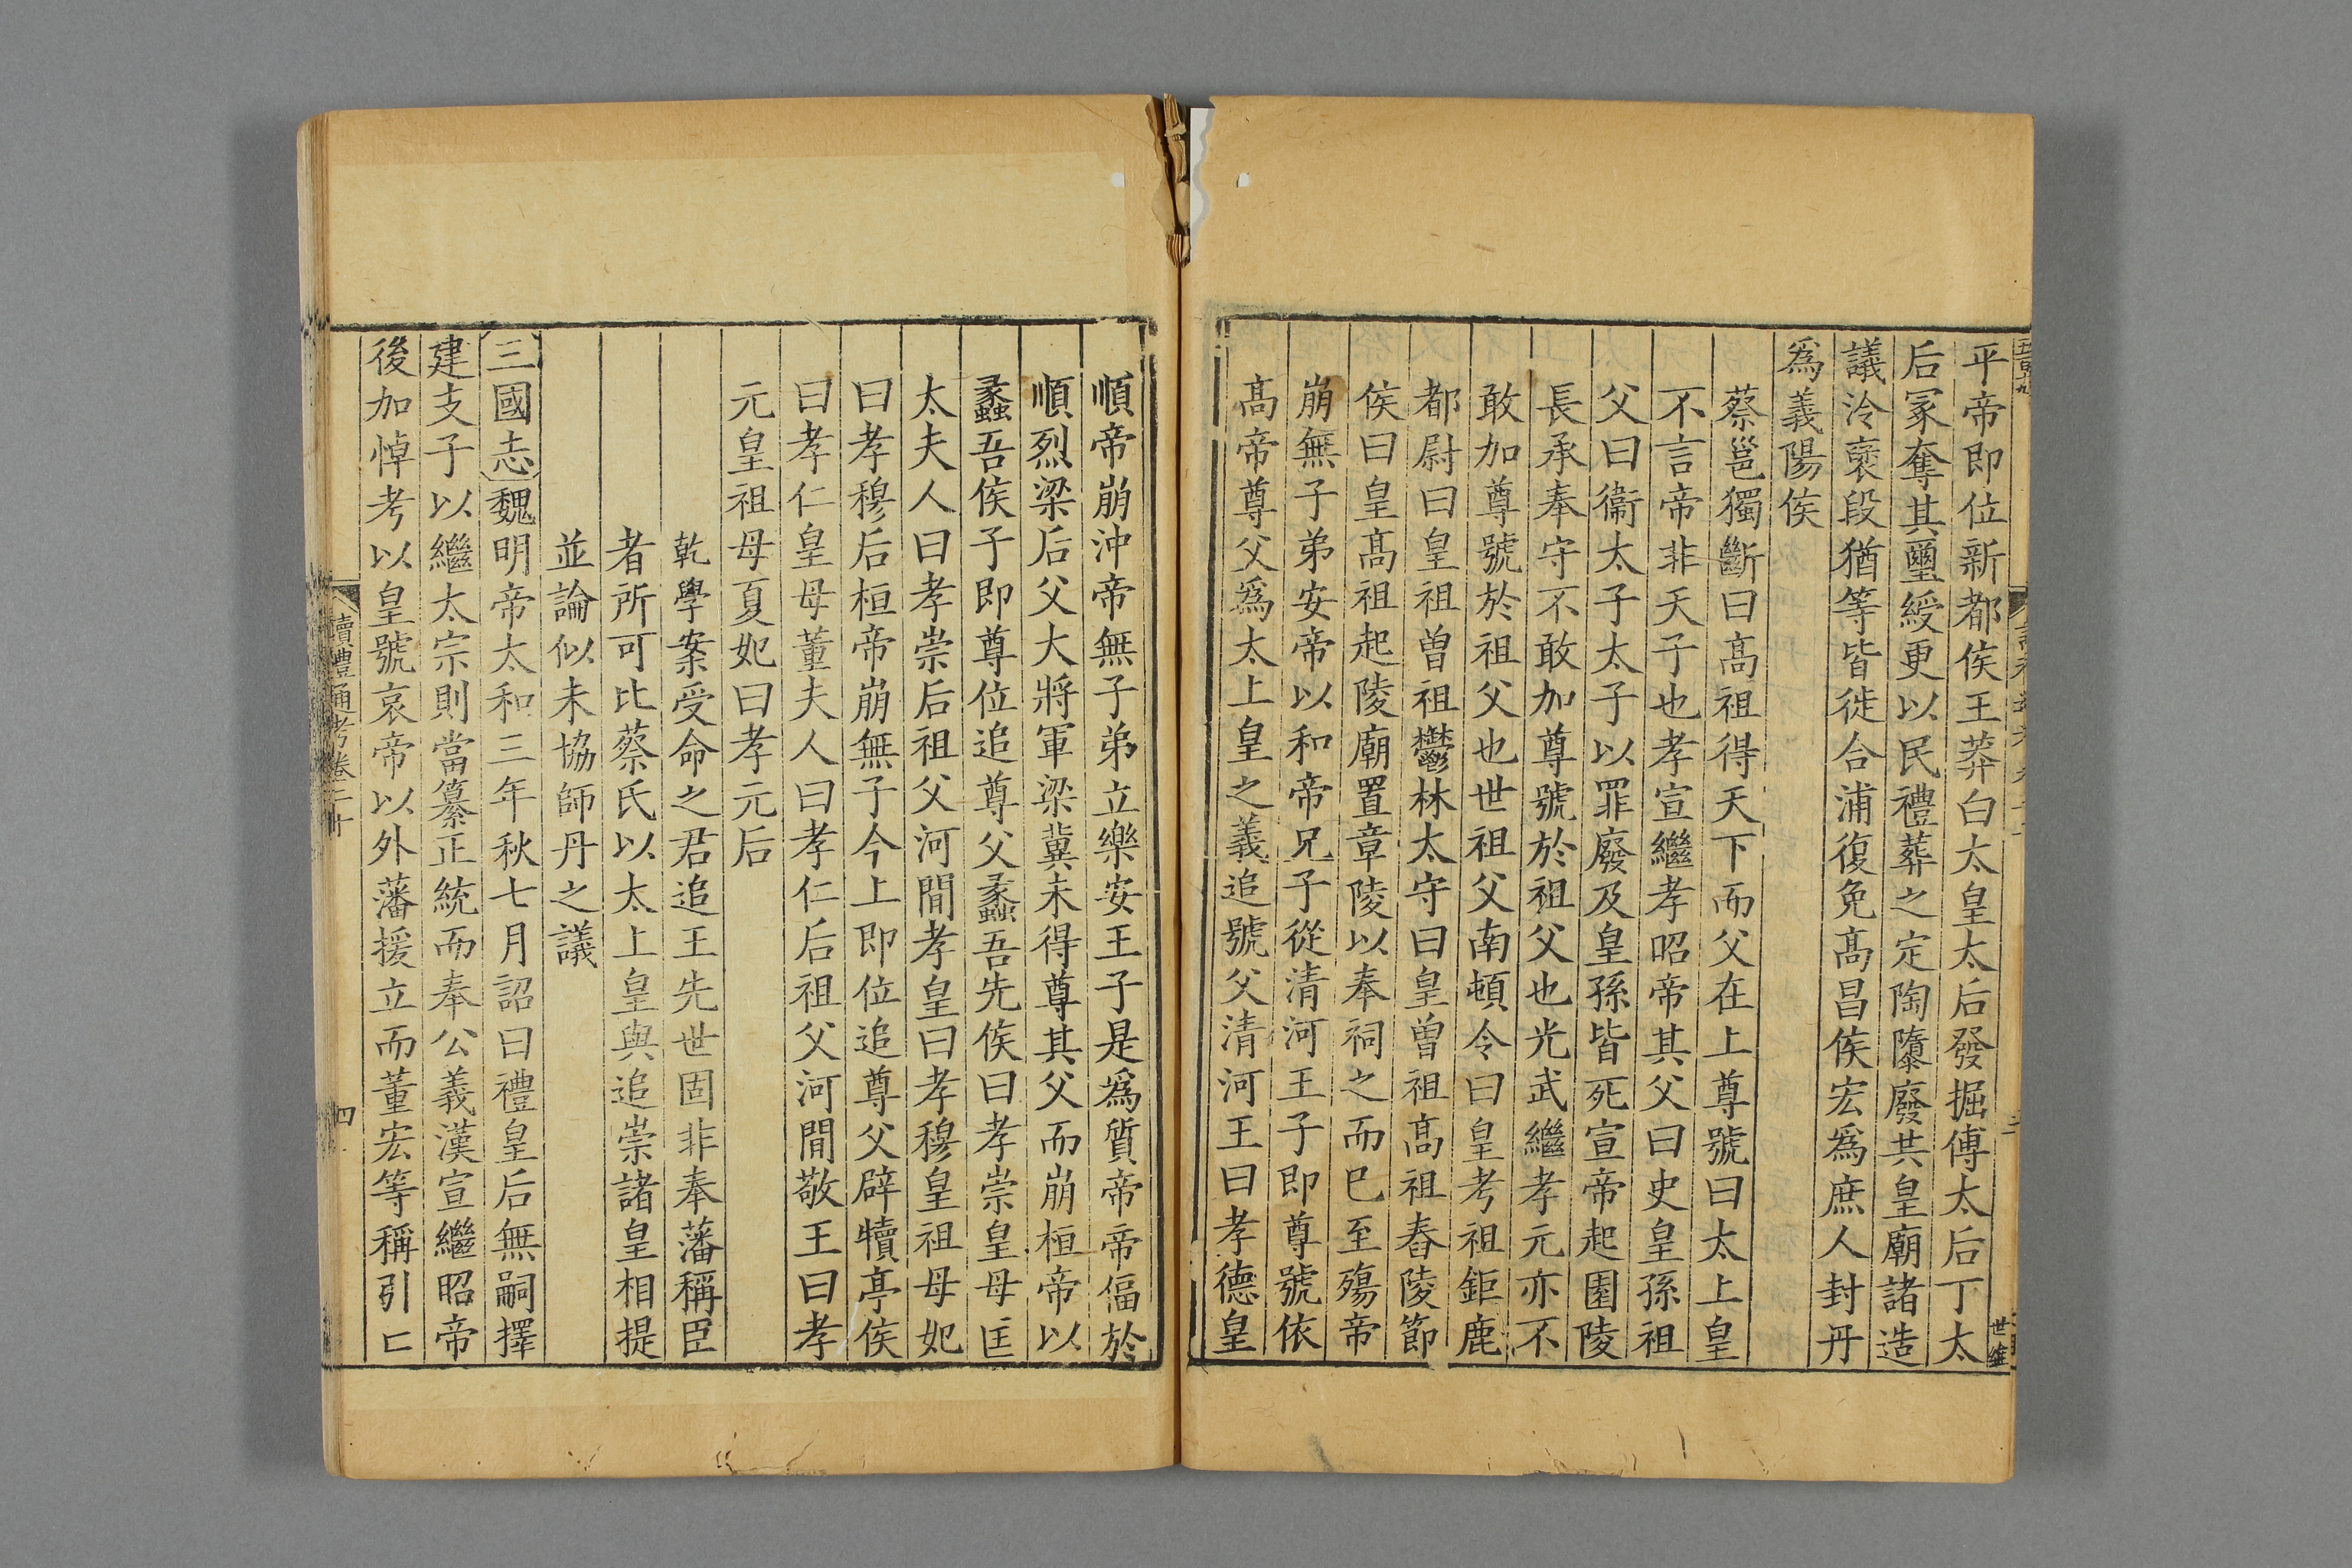 平帝即位新都侯王莽白太皇太后發掘傅太后丁太
后冢奪其璽綬更以民禮葬之定陶隳廢共皇廟諸造
議泠襃段猶等皆徙合浦復免高昌侯宏爲庶人封丹
爲義陽侯
蔡邕獨斷曰高祖得天下而父在上尊號曰太上皇
不言帝非天子也孝宣繼孝昭帝其父曰史皇孫祖
父曰衞太子太子以罪廢及皇孫皆死宣帝起園陵
長承奉守不敢加尊號於祖父也光武繼孝元亦不
敢加尊號於祖父也世祖父南頓令曰皇考祖鉅鹿
都尉曰皇祖曾祖鬱林太守曰皇曾祖高祖舂陵節
侯曰皇高祖起陵廟置章陵以奉祠之而已至殤帝
崩無子弟安帝以和帝兄子從清河王子即尊號依
高帝尊父爲太上皇之義追號父清河王曰孝德皇
順帝崩沖帝無子弟立樂安王子是爲質帝帝偪於
順烈梁后父大將軍梁冀未得尊其父而崩桓帝以
蠡吾侯子即尊位追尊父蠡吾先侯曰孝崇皇母匽
太夫人曰孝崇后祖父河閒孝皇曰孝穆皇祖母妃
曰孝穆后桓帝崩無子今上即位追尊父辟犢亭侯
曰孝仁皇母董夫人曰孝仁后祖父河閒敬王曰孝
元皇祖母夏妃曰孝元后
乾學案受命之君追王先世固非奉藩稱臣
者所可比蔡氏以太上皇與追崇諸皇相提
並論似未協師丹之議
三國志魏明帝太和三年秋七月詔曰禮皇后無嗣擇
建支子以繼太宗則當纂正統而奉公義漢宣繼昭帝
後加悼考以皇號哀帝以外藩援立而董宏等稱引亡
讀禮通考卷二十
四
世維